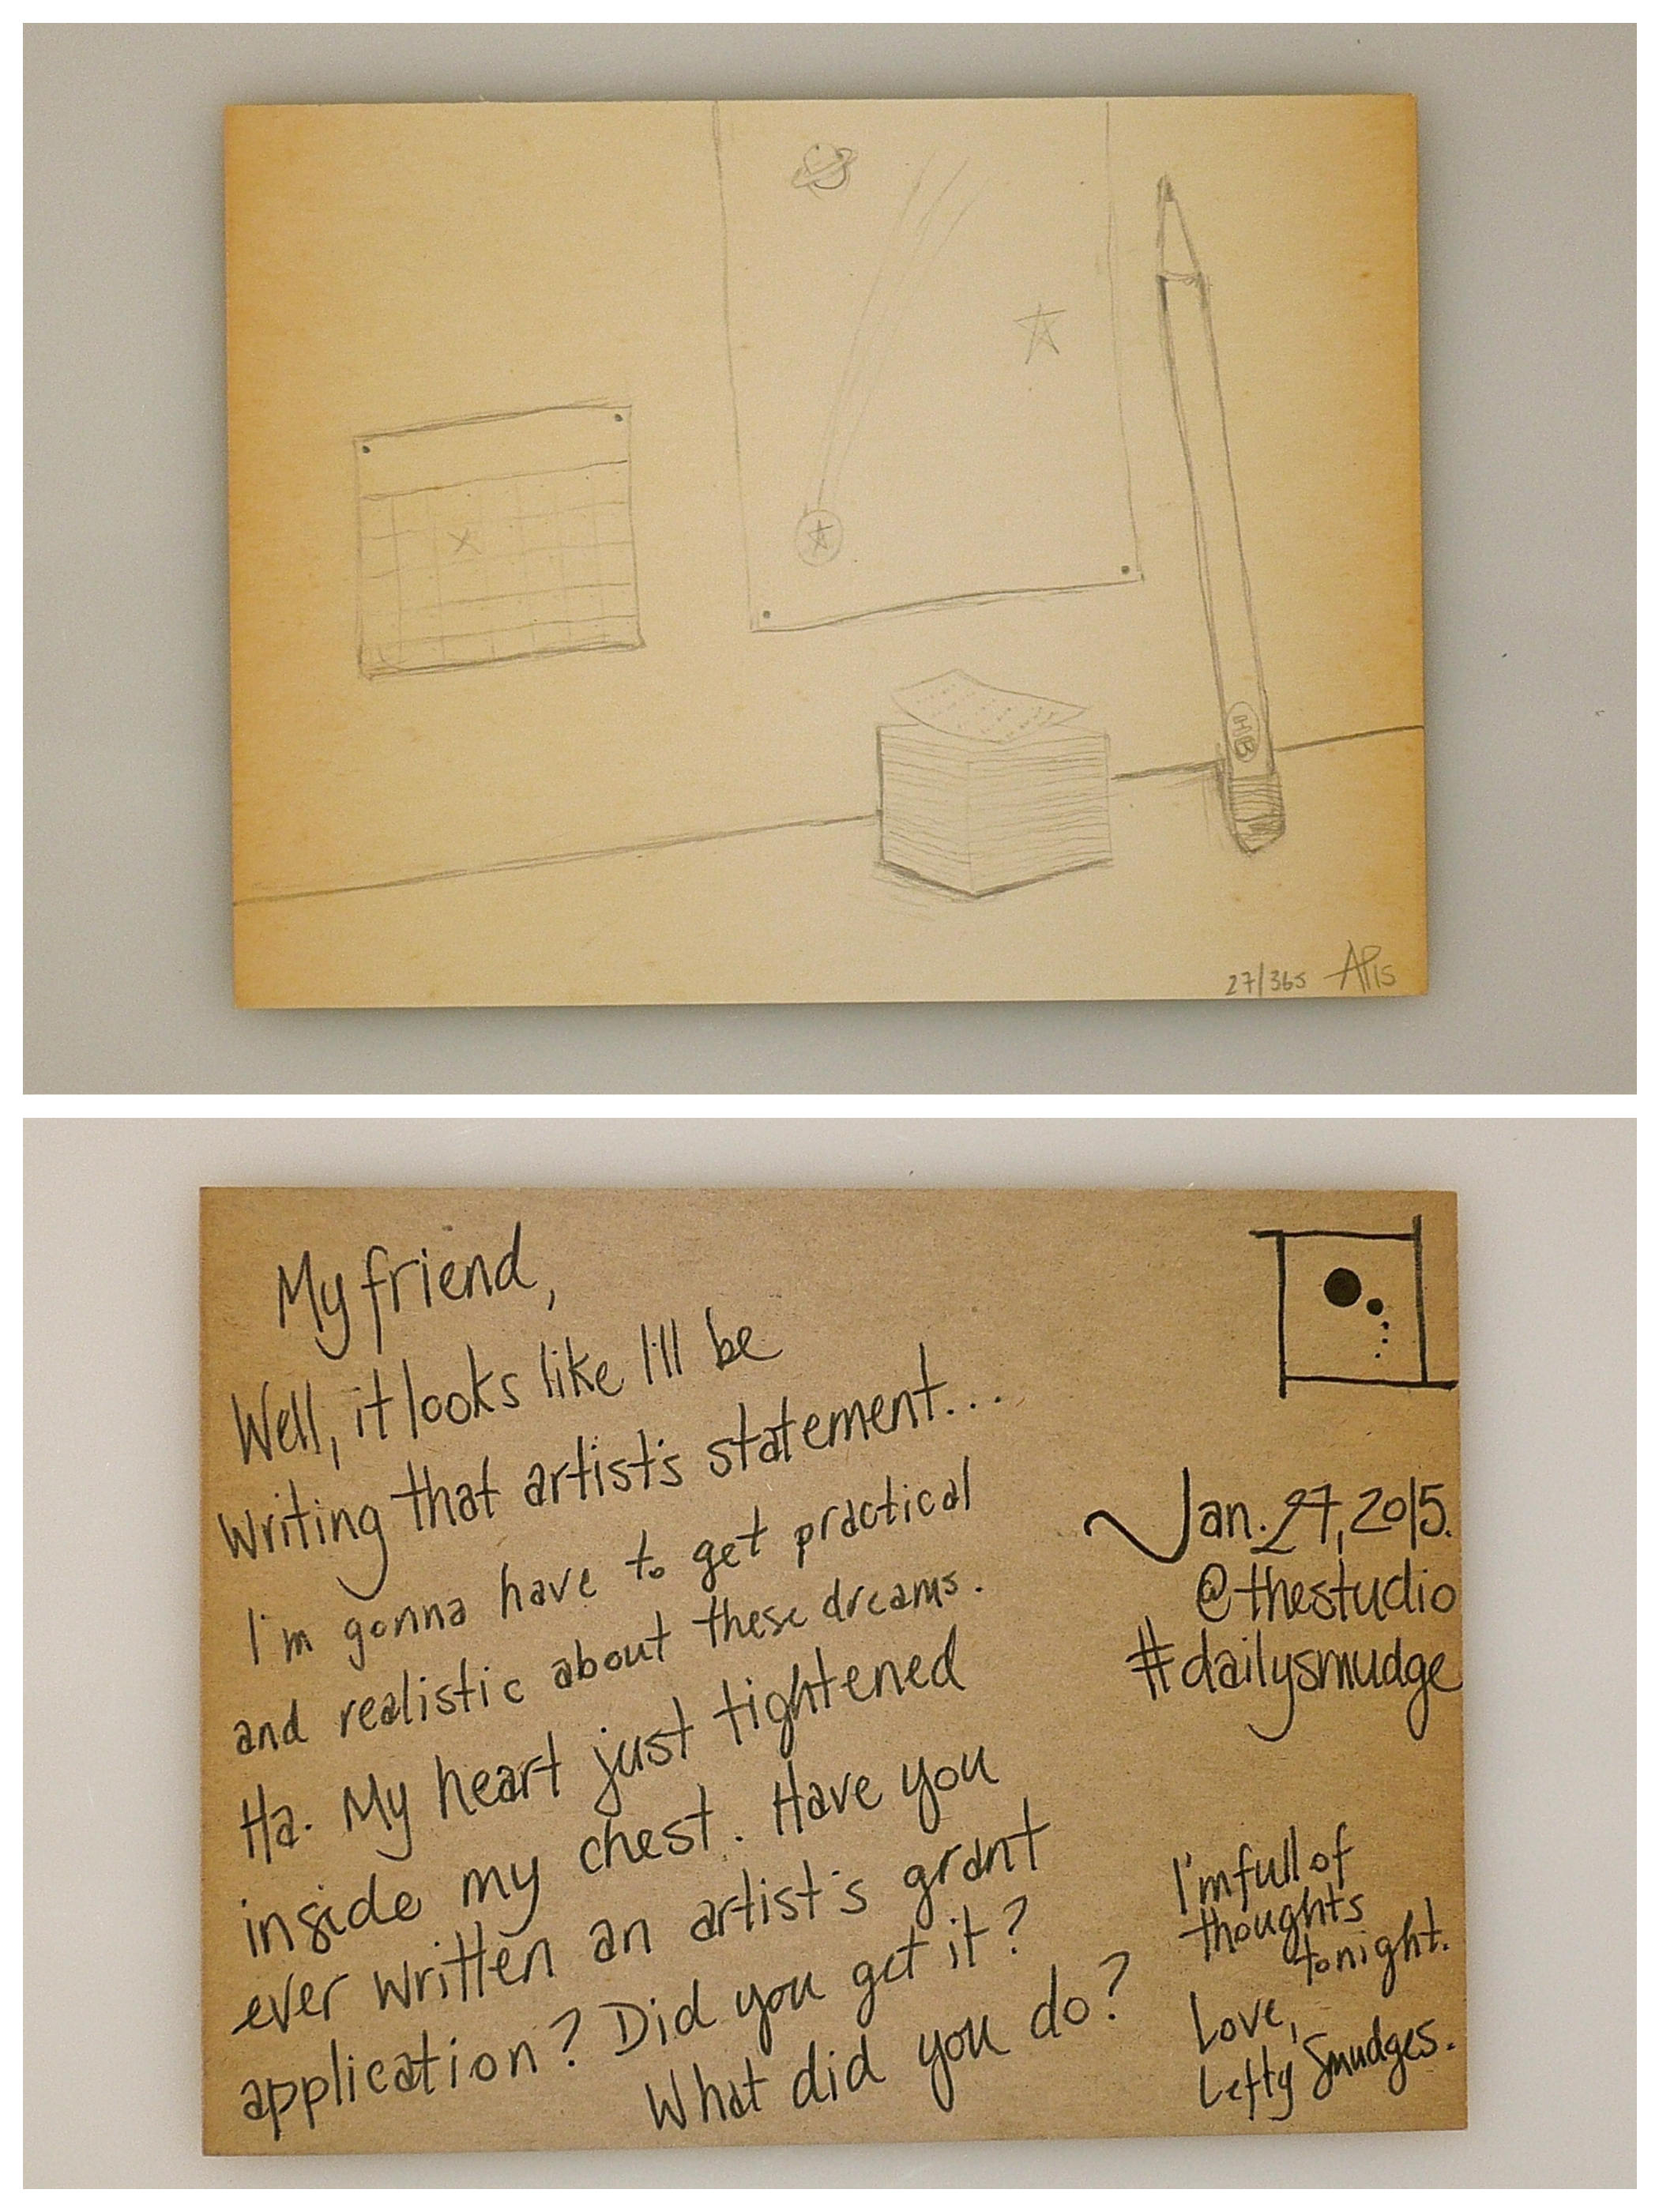 HB
27/365 AP15
My friend,
Well, it looks like I'll be
writing that artist's statement...
I'm gonna have to get practical
and realistic about these dreams.
Ha. My heart just tightened
inside my chest. Have you
ever written an artist's grant
application? Did you get it?
What did you do?
Jan. 27, 2015.
@thestudio
#dailysmudge
I'm full of
thoughts
tonight.
Love,
Lefty Smudges.